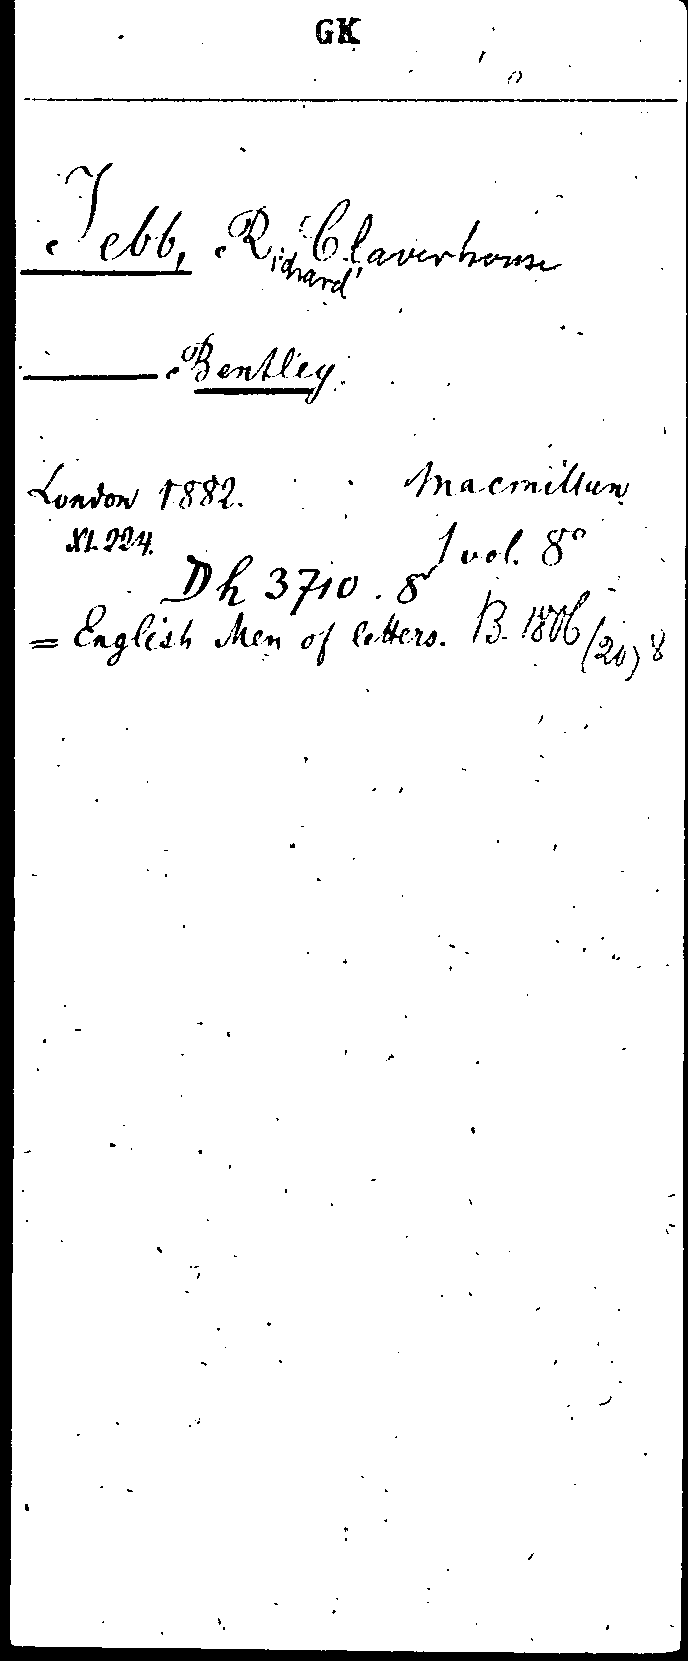 GK
Jebb, Richard Claverhouse
Bentley.
London 1882. Macmillan
XI. 224. 1 vol. 8°
Dh 3710. 8°
= English Men of letters. B. 1806 (20) 8